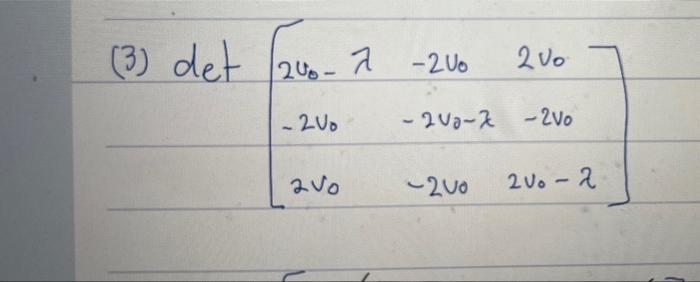 (3) det [ 2v₀ - λ   -2v₀   2v₀ ]
[ -2v₀   -2v₀ - λ   -2v₀ ]
[ 2v₀   -2v₀   2v₀ - λ ]